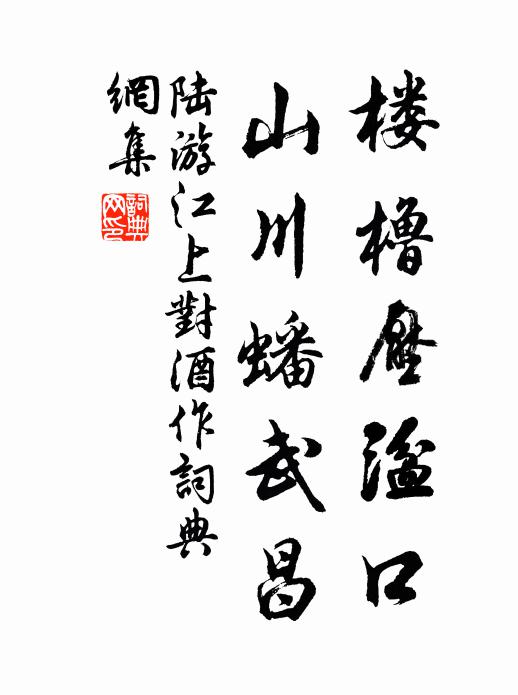 楼櫓壓湓口
山川蟠武昌
陆游江上對酒作詞典
網集
詞典
网印